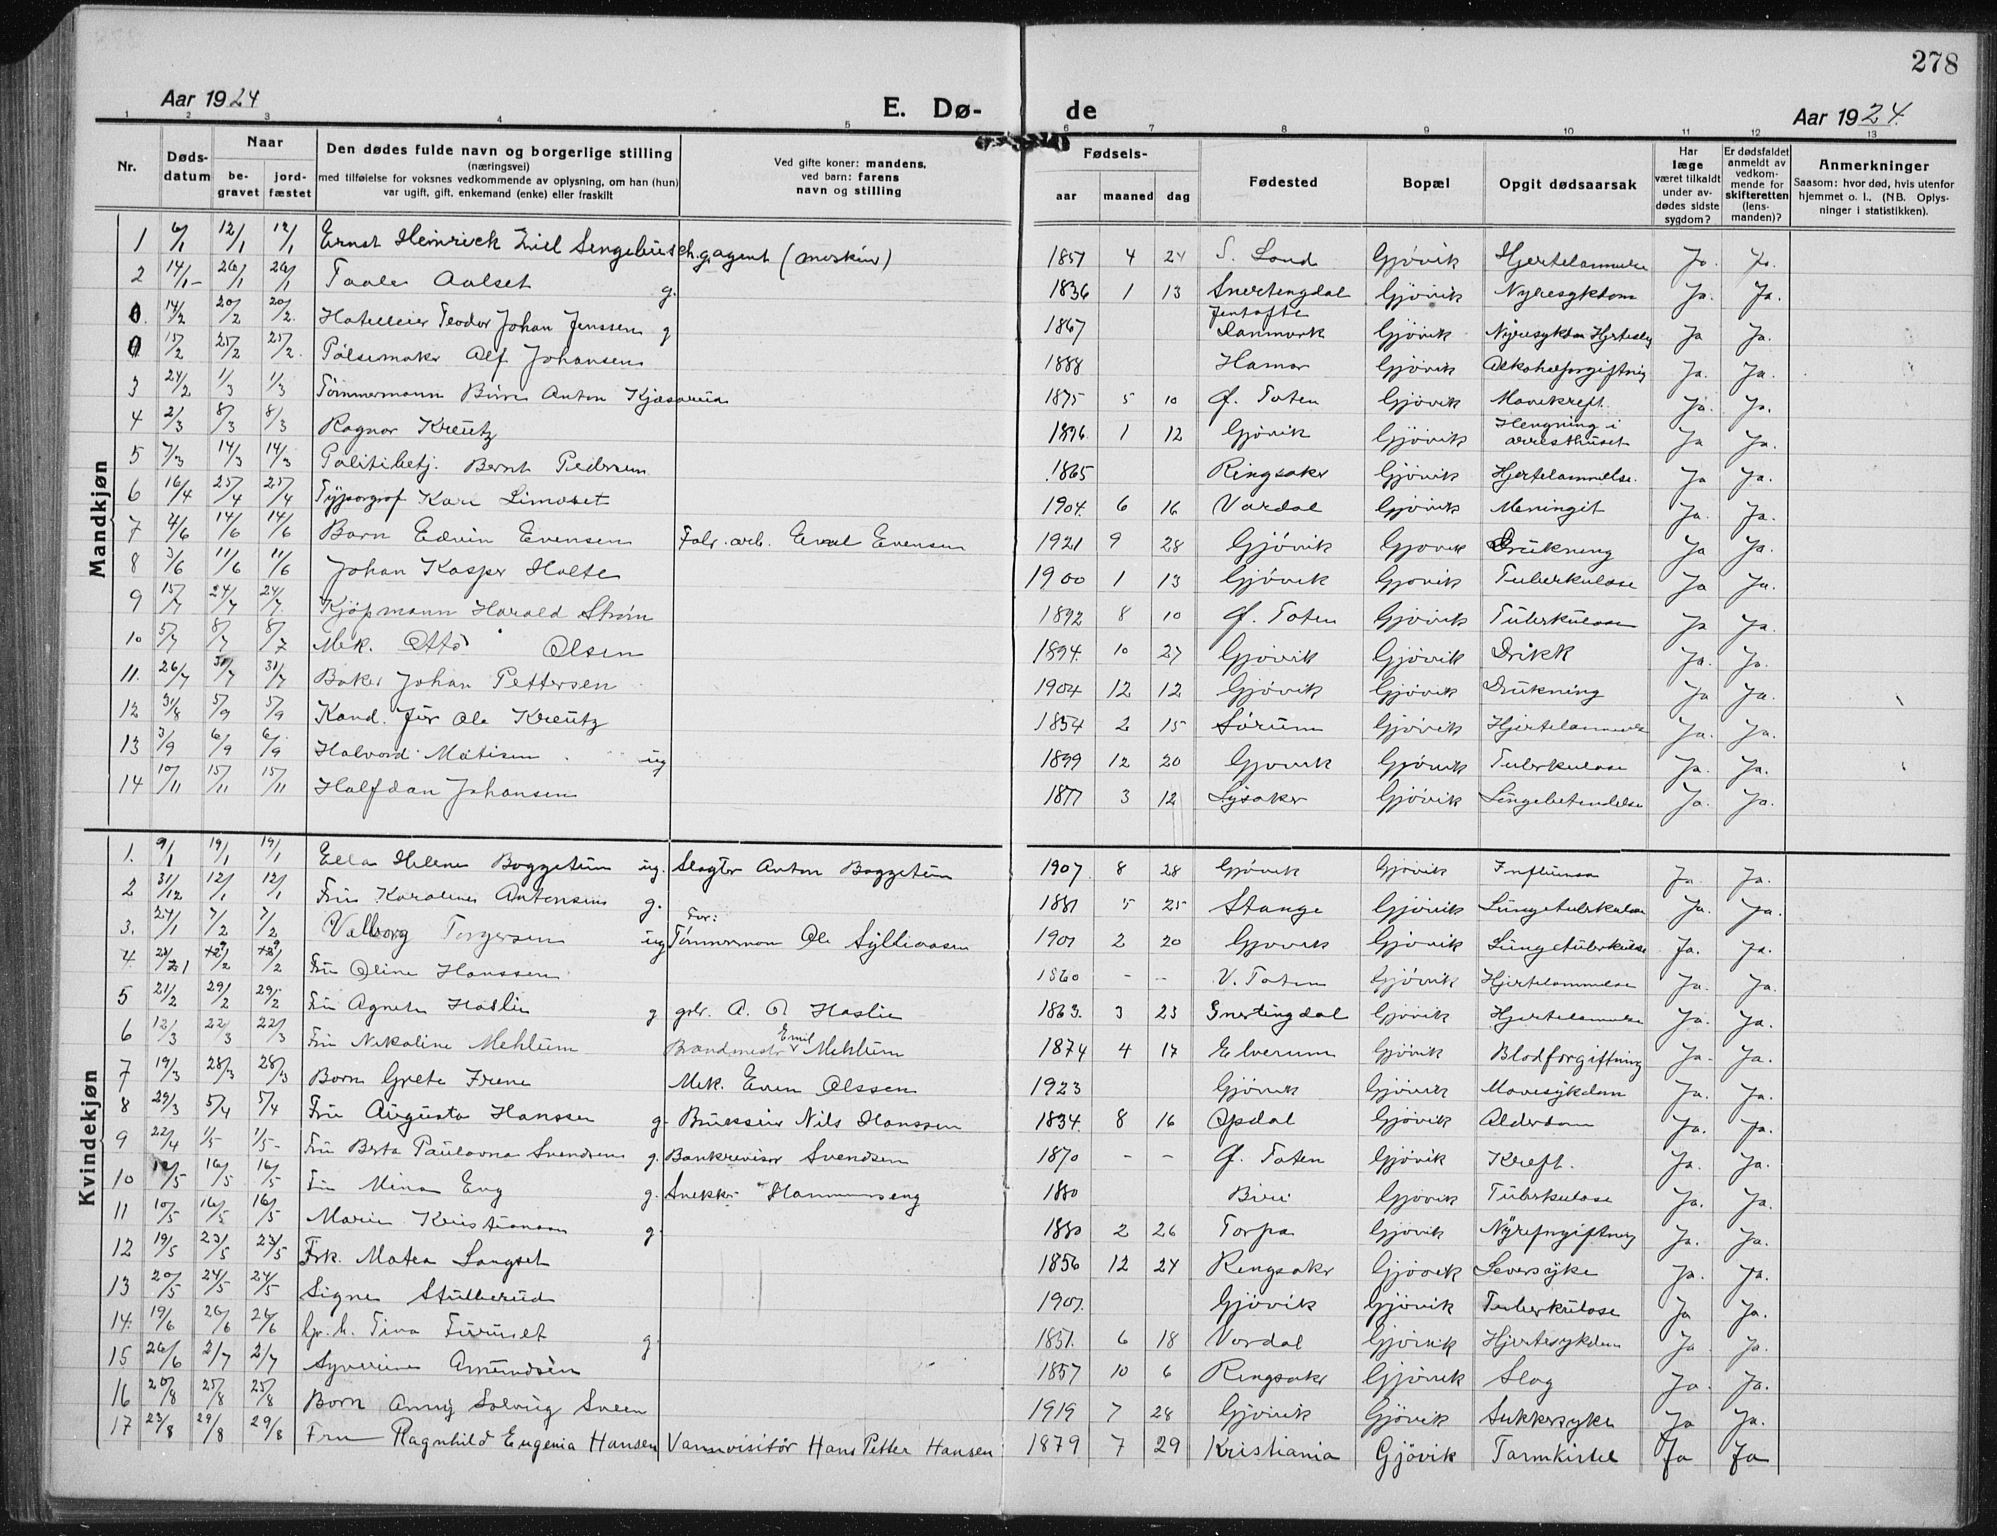 278
Aar 1924
E. Dø-
de
Aar 1924.
1 2 3 4 5 6 7 8 9 10 11 12 13
Nr.
Døds-
datum
Naar
be-
gravet
jord-
fæstet
Den dødes fulde navn og borgerlige stilling
(næringsvei)
med tilføielse for voksnes vedkommende av oplysning, om han (hun)
var ugift, gift, enkemand (enke) eller fraskilt
Ved gifte koner: mandens,
ved barn: farens
navn og stilling
Fødsels-
aar maaned dag
Fødested
Bopæl
Opgit dødsaarsak
Har
læge
været tilkaldt
under av-
dødes sidste
sygdom?
Er dødsfaldet
anmeldt av
vedkom-
mende for
skifteretten
(lens-
manden)?
Anmerkninger
Saasom: hvor død, hvis utenfor
hjemmet o. l.. (NB. Oplys-
ninger i statistikken).
Mandkjøn
1 6/1 12/1 12/1 Ernst Heinrick Emil Sengebusch. g. agent (maskin) 1851 4 24 S. Land Gjövik Hjertelammelse Ja. Ja.
2 14/1 26/1 26/1 Taale Aalset g. 1836 1 13 Snertengdal Gjövik Nyresykdom Ja. Ja.
0. 14/2 20/2 20/2. Hotelleier Teodor Johan Jenssen g 1867 Jentofte Danmark Gjövik Nyresykdom Ja Ja.
0 15/2 25/2 25/2. Pölsemaker Alf Johansen 1888 Hamar Gjövik Alkoholforgiftning Ja. Ja.
3 24/2 1/3 1/3 Tömmermann Anton 1875 5 10 Ø. Toten Gjövik Mavekreft. Ja. Ja.
4 2/3 8/3 8/3 Ragnar Kreutz 1896 1 12 Gjövik Gjövik Hengning i arresthuset Ja Ja.
5 7/3 14/3 14/3 Politibetj. Bernt Pedersen 1865 Ringsaker Gjövik Hjertelammelse. Ja Ja.
6 16/4 25/4 25/4 Typograf Kare Limoset 1904. 6 16 Vardal Gjövik Meningit Ja. Ja.
7 4/6 14/6 14/6 Barn Edvin Evensen Fabr. arb. Evensen 1921 9 28 Gjövik Gjövik Drukning Ja Ja.
8 3/6 11/6 11/6 Johan Kasper Holte 1900 1 13 Gjövik Gjövik Tuberkulose Ja Ja.
9 15/7 24/7 24/7. Kjöpmann Harald Ström 1892 8 10 Ø. Toten Gjövik Tuberkulose Ja Ja.
10 5/7 8/7 8/7 Mek. Otto Olsen 1894. 10 27 Gjövik Gjövik Drikk Ja. Ja.
11. 26/7 31/7 31/7 Baker Johan Pettersen 1904 12 12 Gjövik Gjövik Drukning Ja Ja.
12 31/8 5/9 5/9 Kand. jur Ole Kreutz 1854 2 15 Sörum Gjövik Hjertelammelse Ja. Ja.
13 3/9 6/9 6/9 Halvord Matisen ug 1899 12 20 Gjövik Gjövik Tuberkulose Ja. Ja.
14 10/11 15/11 15/11 Halfdan Johansen 1877 3 12 Lysaker Gjövik Lungebetendelse Ja. Ja.
Kvindekjøn
1. 9/1 19/1 19/1 Ella Helene Boggetun ug. Slagter Anton Boggetun 1907. 8 28 Gjövik Gjövik Influensa Ja. Ja.
2 31/12 12/1 12/1 Fru Karoline Antonsen g. 1881 5 25 Stange Gjövik Lungetuberkulose Ja. Ja.
3. 24/1 7/2 7/2 Valborg Torgersen ug Far: Tömmerman Ole 1901 2 20 Gjövik Gjövik Lungetuberkulose Ja. Ja.
4. Fru Oline Hanssen 1860 - - V. Toten Gjövik Hjertelammelse Ja. Ja.
5 21/2 29/2 29/2 Fru Agnete Haslie g gbr. A. O Haslie 1863. 3 23 Snertingdal Gjövik Hjertelammelse Ja. Ja.
6 12/3 22/3 22/3 Fru Nikoline Mehlum Brandmester Emil Mehlum 1874 4 17 Elverum Gjövik Blodforgiftning Ja. Ja.
7 19/3 28/3 28/3 Barn Grete Irene Mek. Even Olssen 1923 Gjövik Gjövik Mavesykdom Ja. Ja.
8 29/3 5/4 5/4 Fru Augusta Hanssen g. Nils Hanssen 1834. 8 16 Opdal Gjövik Alderdom Ja. Ja.
9 22/4 1/5 1/5 Fru Berta Paulovna Svendsen g. Bankrevisor Svendsen 1870 - - Ø. Toten Gjövik Kreft. Ja. Ja.
10 12/5 16/5 16/5 Fru Mina Eng g. Snekker Hammerseng 1880 Biri Gjövik Tuberkulose Ja. Ja.
11 10/5 16/5 16/5 Marie Kristiansen g. 1880 2 26 Torpa Gjövik Nyreforgiftning Ja. Ja.
12 19/5 23/5 23/5 Frk. Matea Langset 1856 12 24 Ringsaker Gjövik Leversyke Ja. Ja.
13 20/5 24/5 24/5 Signe Stulberud 1901. Gjövik Gjövik Tuberkulose Ja Ja.
14. 19/6 26/6 26/6 Tina Furuset g. 1851. 6 18 Vardal Gjövik Hjertesykdom Ja Ja.
15 26/6 2/7 2/7 Syverine Amundsen 1857 10 6 Ringsaker Gjövik Slag Ja. Ja.
16 20/8 25/8 25/8 Barn Anny Solveig Sveen 1919 7 28 Gjövik Gjövik Sukkersyke Ja Ja.
17 23/8 29/8 29/8 Fru Ragnhild Eugenia Hansen Vannvisitör Hans Petter Hansen 1879 7 29 Kristiania Gjövik Tarmkirtel Ja Ja